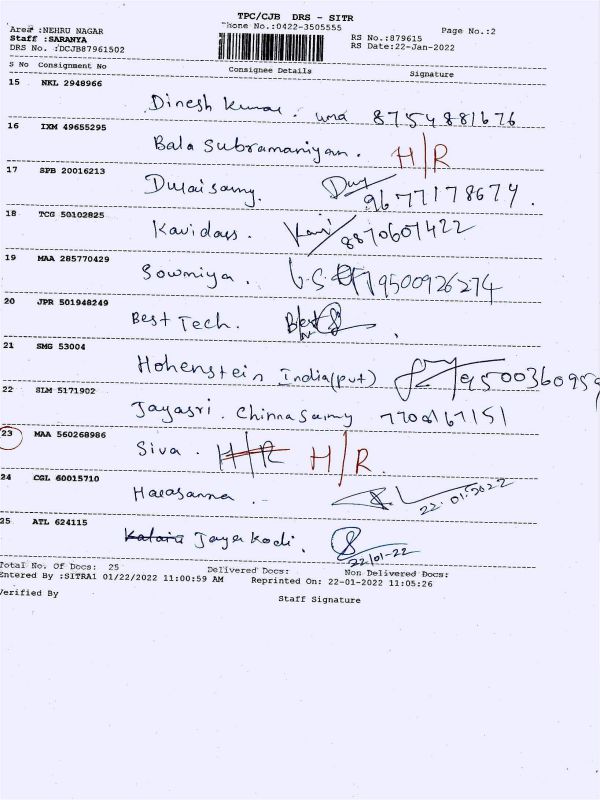 TPC/CJB DRS - SITR
Phone No.:0422-3505555
Page No.:2
Area :NEHRU NAGAR
Staff :SARANYA
DRS No. :DCJB87961502
RS No.:879615
RS Date:22-Jan-2022
S No Consignment No Consignee Details Signature
15 NKL 2948966
Dinesh Kumar. uma 8754881676
16 IXM 49655295
Bala Subramaniyan. H/R
17 SPB 20016213
Duraisamy. 9677178674.
18 TCG 50102825
Kavidass. Kavi 8870607422
19 MAA 285770429
Sowmiya. 9500926274
20 JPR 501948249
Best Tech.
21 SMG 53004
Hohenstein India(pvt) 9500360959
22 SLM 5171902
Jayasri. Chinnasamy 7708167151
23 MAA 560268986
Siva. H/R H/R.
24 CGL 60015710
22.01.2022
25 ATL 624115
Jaya Kodi. 22/01-22
Total No. Of Docs: 25 Delivered Docs: Non Delivered Docs:
Entered By :SITRA1 01/22/2022 11:00:59 AM Reprinted On: 22-01-2022 11:05:26
Verified By Staff Signature